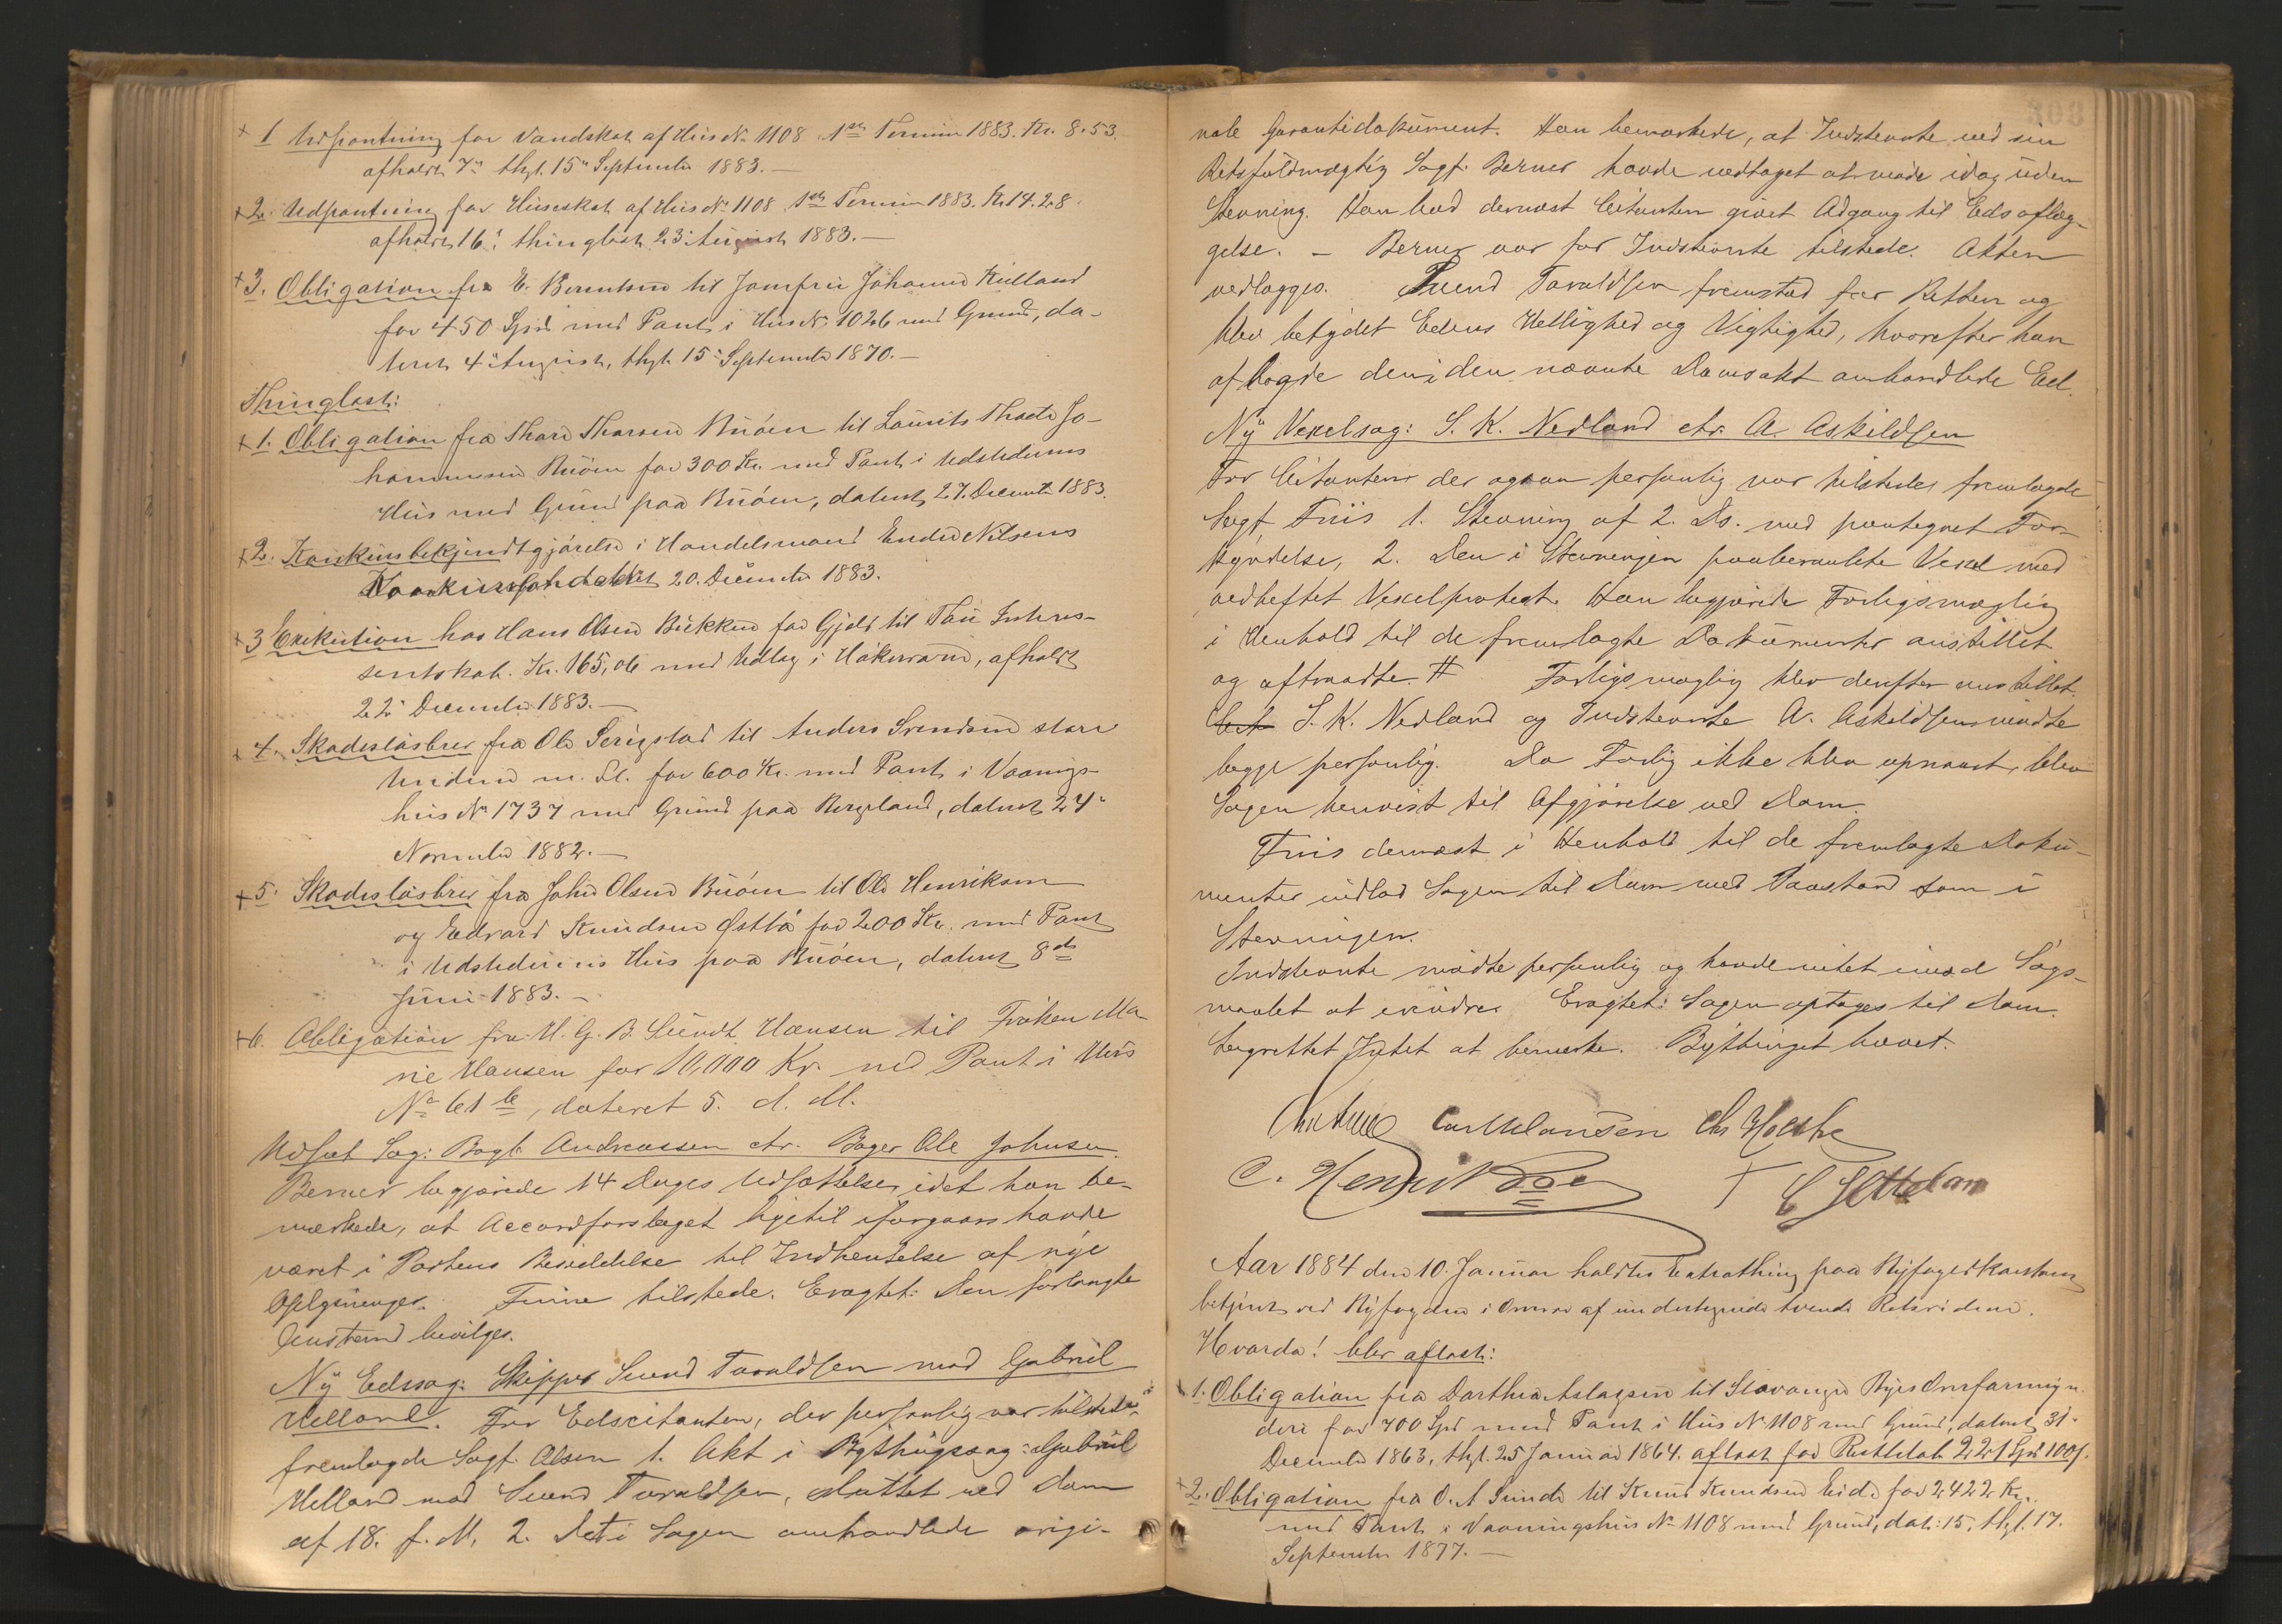 + 1 Udpantning for Vandskat af Hus No 1108 1ste Termin 1883. Kr. 8.53.
afholdt 7de thgl. 15de September 1883.—
+ 2. Udpantning for Huseskat af Hus No 1108 1ste Termin 1883. Kr 14.28.
afholdt 16. thinglæst 23. August 1883.—
+ 3. Obligation fra E. Berentsen til Jomfru Johanne Kielland
for 450 Spd med Pant i Hus No 1026 med Grund, da-
teret 4 August, thgl. 15 September 1870.—
Thinglæst:
+ 1. Obligation fra Thore Thorsen Buøen til Laurits Thode Jo-
hannesen Buøen for 300 Kr. med Pant i Udstederens
Hus med Grund paa Buøen, dateret 27. Decembr 1883.
+ 2. Konkursbekjendtgjørelse i Handelsmand Endre Nilsens
Konkursbo dateret 20. December 1883.
+ 3 Exekution hos Hans Olsen Bukken for Gjæld til Tou Interes-
sentskab. Kr. 165,06 med Udlæg i Hökeraand, afholdt
22. December 1883.—
+ 4. Skadesløsbrev fra Ole Serigstad til Anders Svendsen store
Undem m. fl. for 600 Kr. med Pant i Vaanings-
hus No 1737 med Grund paa Bergeland, dateret 24.
November 1882.—
+ 5. Skadesløsbrev fra John Olsen Buøen til Ole Henriksen
og Edvard Knudsen Østbø for 200 Kr. med Pant
i Udstederens Hus paa Buøen, dateret 8de
Juni 1883.—
+ 6. Obligation fra H. G. B. Sundt Hansen til Frøken Ma-
rie Hansen for 10,000 Kr. med Pant i Hus
No 61 b, dateret 5. d. M.
Udsat Sag: Bagb. Andreassen ctr. Bager Ole Johnsen.
Berner begjærede 14 Dages Udsættelse, idet han be-
mærkede, at Accordforslaget ligetil iforgaars havde
været i Partens Besiddelse til Indhentelse af nye
Oplysninger. Finne tilstede. Eragtet: Den forlangte
Anstand bevilges.
Ny Edssag: Skipper Svend Taraldsen mod Gabriel
Helland. For Edscitanten, der personlig var tilstede,
fremlagde Sagf. Olsen 1. Akt i Bythingssag: Gabriel
Helland mod Svend Taraldsen, sluttet ved Dom
af 18. f. M. 2. Det i Sagen omhandlede origi-
nale Garantidokument. Han bemærkede, at Indstevnte ved sin
Retsfuldmægtig Sagf. Berner havde vedtaget at møde idag uden
Stevning. Han bad dernæst Citanten givet Adgang til Eds aflæg-
gelse. – Berner var for Indstevnte tilstede. Akten
vedlægges. Svend Taraldsen fremstod for Retten og
blev betydet Edens Hellighed og Vigtighed, hvorefter han
aflagde den i den nævnte Domsakt omhandlede Ed.
Ny Vexelsag: S. K. Nedland ctr. A. Askildsen
For Citanten der ogsaa personlig var tilstede, fremlagde
Sagf. Friis 1. Stevning af 2. ds. med paategnet For-
kyndelse, 2. Den i Stevningen paaberaabte Vexel med
vedheftet Vexelprotest. Han begjærede Forligsmægling
i Henhold til de fremlagte Dokumenter anstillet
og aftraadte. # Forligsmægling blev derefter anstillet.
S. K. Nedland og Indstevnte A. Askildsen mødte
begge personlig. Da Forlig ikke blev opnaaet, blev
Sagen henvist til Afgjørelse ved Dom.
Friis dernæst i Henhold til de fremlagte Doku-
menter indlod Sagen til Dom med Paastand som i
Stevningen.
Indstevnte mødte personlig og havde intet imod Søgs-
maalet at erindre. Eragtet: Sagen optages til Dom.
Lagrettet Intet at bemærke. Bythinget hævet.
Carl Hansen Chr Holske
C. Henriksen
Aar 1884 den 10. Januar holdtes Extrathing paa Byfogedkontoret
betjent ved Byfogden i Overvær af undertegnede tvende Retsvidner.
Hvorda! blev aflæst:
1. Obligation fra Dorthea Aslagsen til Stavanger Byes Overformyn-
deri for 700 Spd med Pant i Hus No 1108 med Grund, dateret 31.
December 1863, thgl. 25 Januar 1864. aflæst for Restbeløb 221 Spd 100 s.
+ 2. Obligation fra O. A Sunde til Knud Knudsen Eide for 2422 Kr.
med Pant i Vaaningshus No 1108 med Grund, dat: 15, thgl. 17.
September 1877.—